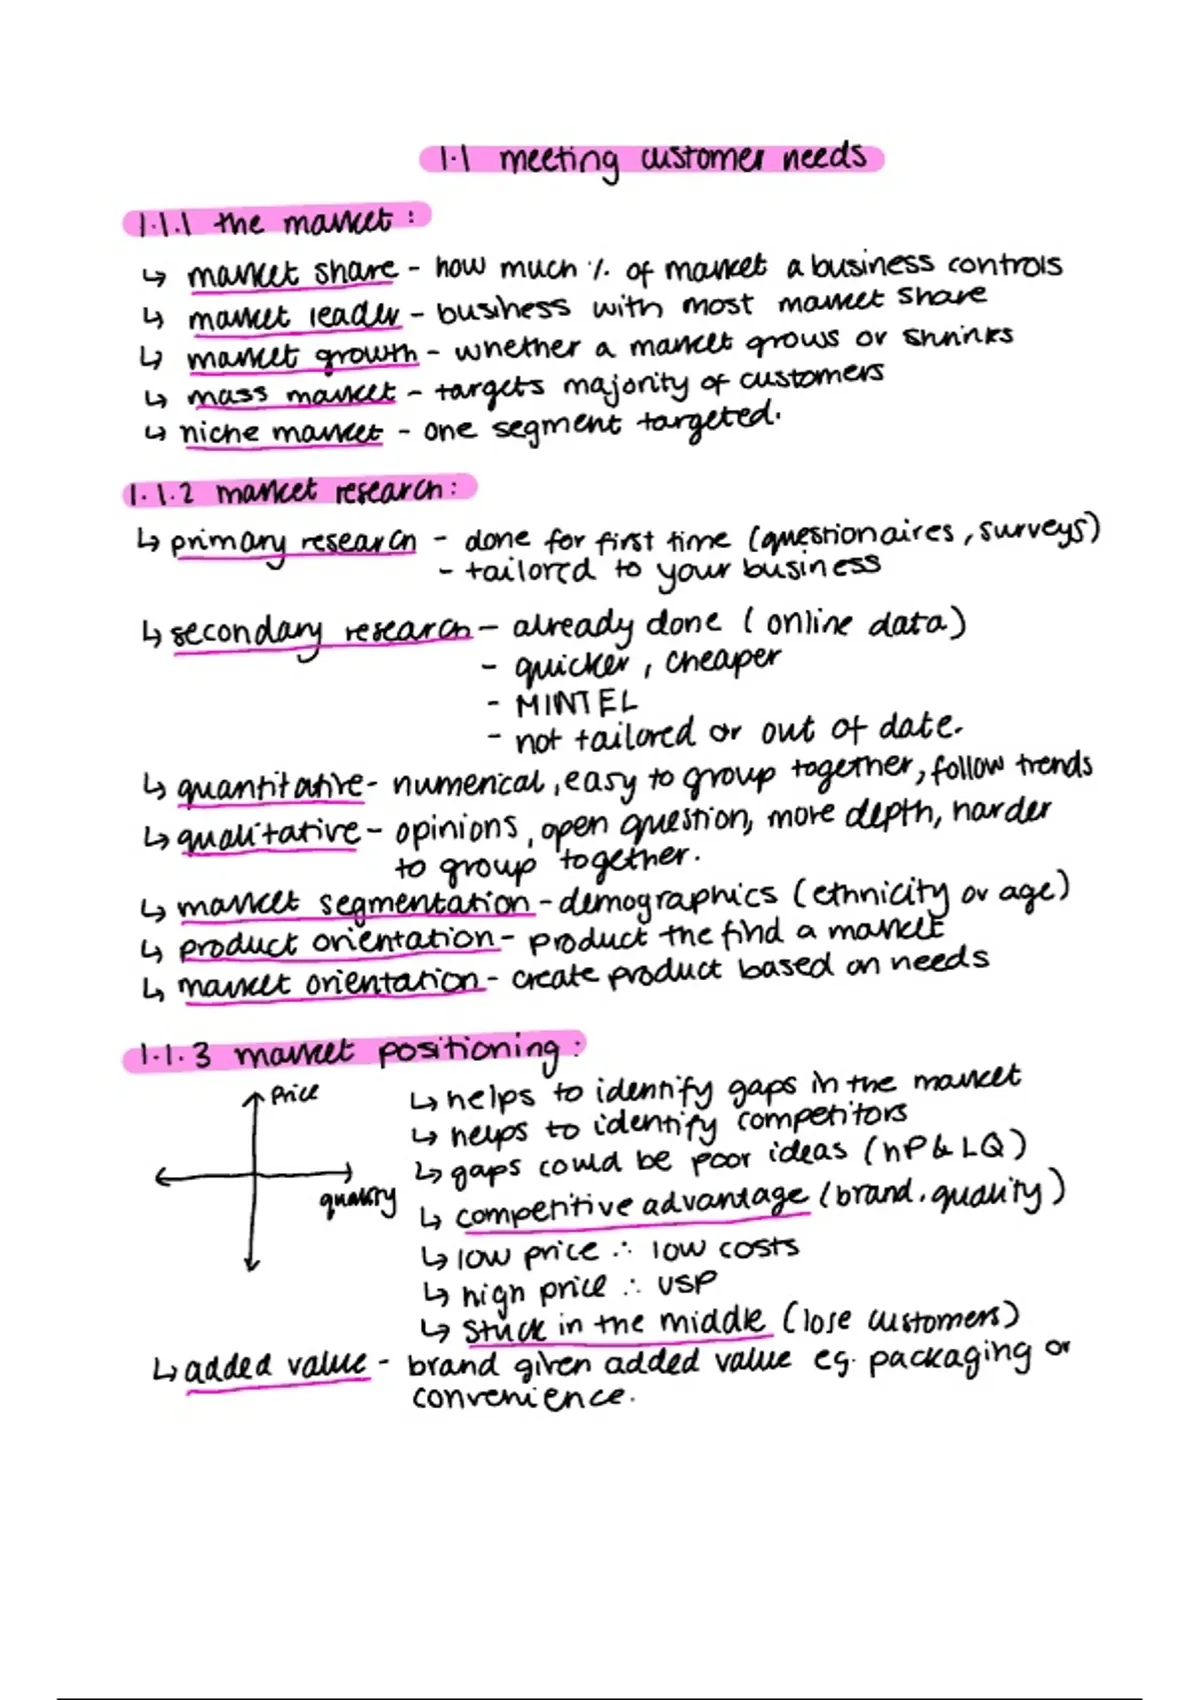 1.1 meeting customer needs
1.1.1 the market :
↳ market share - how much % of market a business controls
↳ market leader - business with most market share
↳ market growth - whether a market grows or shrinks
↳ mass market - targets majority of customers
↳ niche market - one segment targeted.
1.1.2 market research :
↳ primary research - done for first time (questionaires, surveys)
- tailored to your business
↳ secondary research - already done (online data)
- quicker, cheaper
- MINTEL
- not tailored or out of date.
↳ quantitative - numerical, easy to group together, follow trends
↳ qualitative - opinions, open question, more depth, harder
to group together.
↳ market segmentation - demographics (ethnicity or age)
↳ product orientation - product the find a market
↳ market orientation - create product based on needs
1.1.3 market positioning :
Price
quality
↳ helps to identify gaps in the market
↳ helps to identify competitors
↳ gaps could be poor ideas (HP & LQ)
↳ competitive advantage (brand, quality)
↳ low price ∴ low costs
↳ high price ∴ USP
↳ stuck in the middle (lose customers)
↳ added value - brand given added value eg. packaging or
convenience.